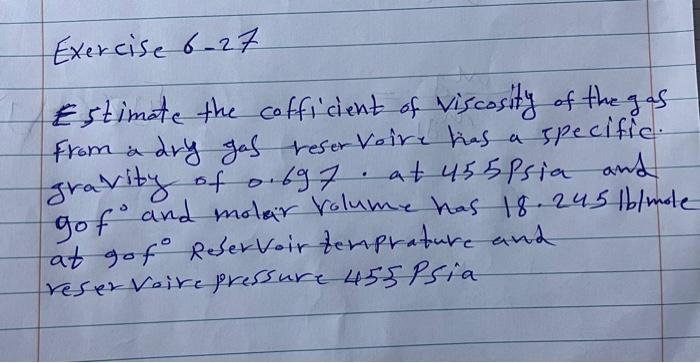 Exercise 6-27
Estimate the cofficient of viscosity of the gas
From a dry gas reservoire has a specific.
gravity of 0.697. at 455 Psia and
90f° and molar volume has 18.245 lb/mole
at 90f° Reservoir temprature and
reservoire pressure 455 Psia